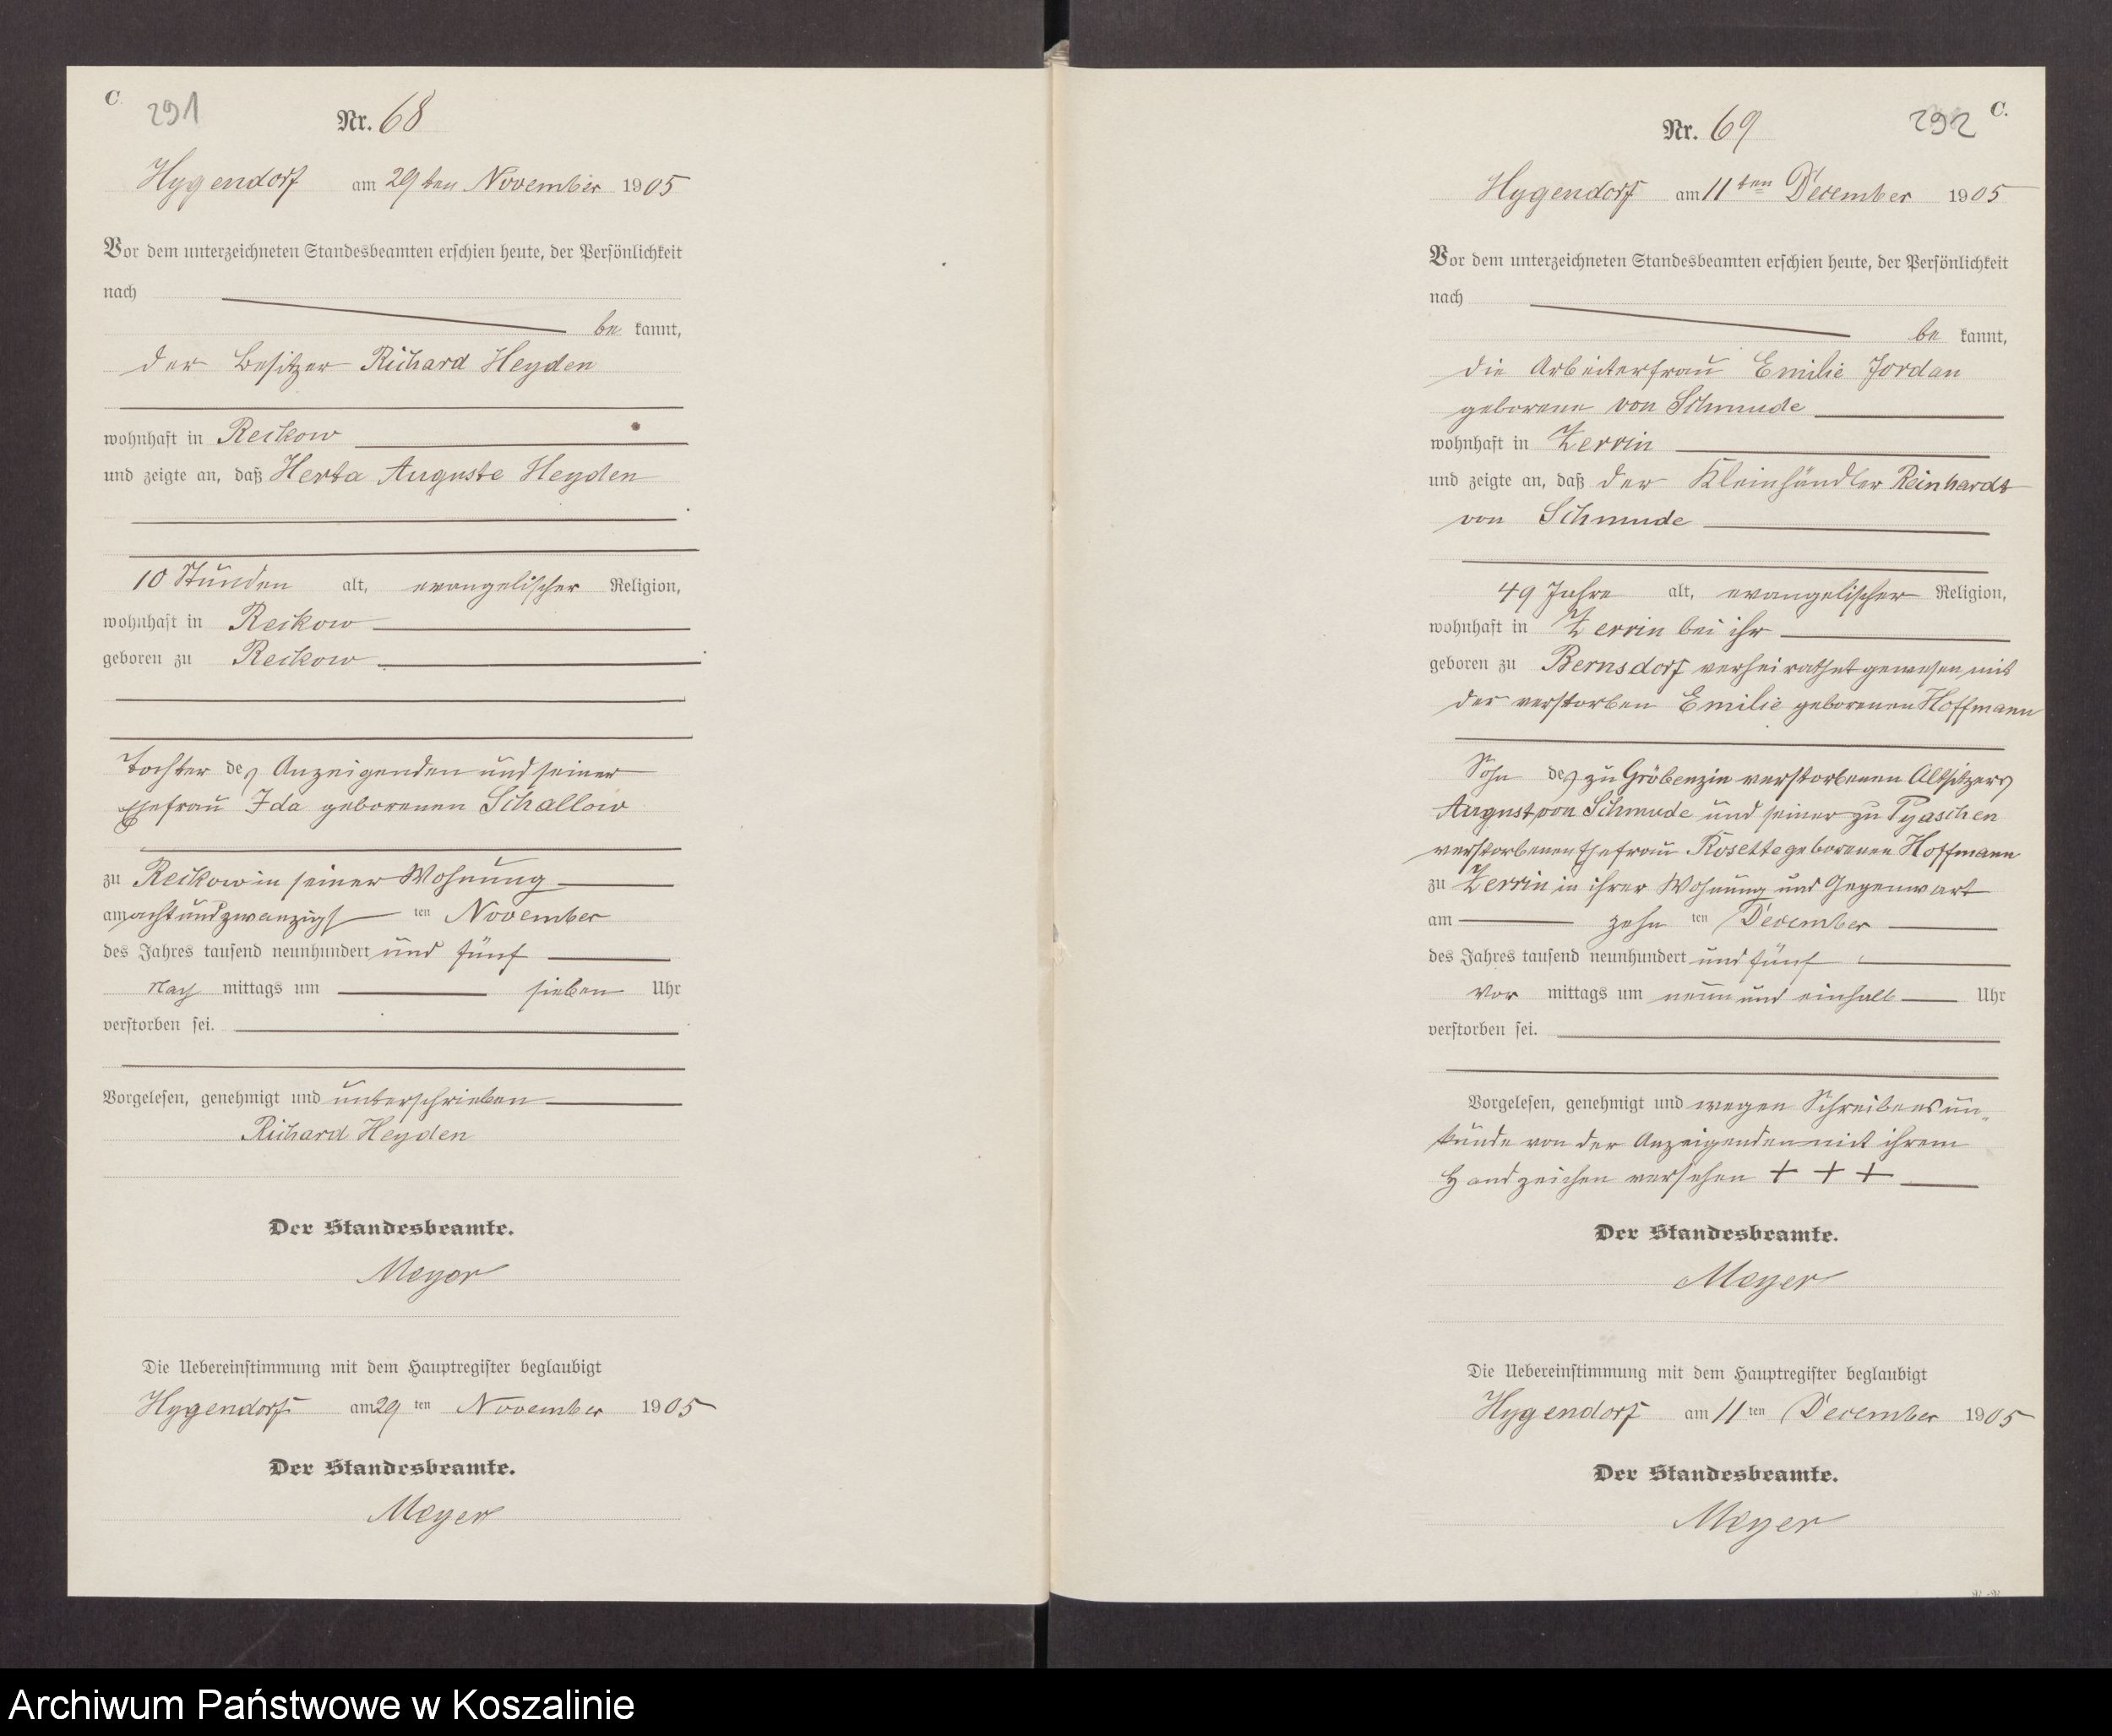 C.
291
Nr. 68
Hygendorf am 29ten November 1905
Vor dem unterzeichneten Standesbeamten erschien heute, der Persönlichkeit
nach
be kannt,
der Besitzer Richard Heyden
wohnhaft in Reckow
und zeigte an, daß Herta Auguste Heyden
10 Stunden alt, evangelischer Religion,
wohnhaft in Reckow
geboren zu Reckow
Tochter des Anzeigenden und seiner
Ehefrau Ida geborenen Schallow
zu Reckow in seiner Wohnung
am achtundzwanzigsten November
des Jahres tausend neunhundert und fünf
Nach mittags um sieben Uhr
verstorben sei.
Vorgelesen, genehmigt und unterschrieben
Richard Heyden
Der Standesbeamte.
Meyer
Die Uebereinstimmung mit dem Hauptregister beglaubigt
Hygendorf am 29 ten November 1905
Der Standesbeamte.
Meyer
292 C.
Nr. 69
Hygendorf am 11ten December 1905
Vor dem unterzeichneten Standesbeamten erschien heute, der Persönlichkeit
nach
be kannt,
die Arbeiterfrau Emilie Jordan
geborene von Schmude
wohnhaft in Zerrin
und zeigte an, daß der Kleinhändler Reinhardt
von Schmude
49 Jahre alt, evangelischer Religion,
wohnhaft in Zerrin bei ihr
geboren zu Bernsdorf verheirathet gewesen mit
der verstorben Emilie geborenen Hoffmann
Sohn des zu Gröbenzin verstorbenen Altsitzers
August von Schmude und seiner zu Pyaschen
verstorbenen Ehefrau Rosette geborenen Hoffmann
zu Zerrin in ihrer Wohnung und Gegenwart
am zehn ten December
des Jahres tausend neunhundert und fünf
Vor mittags um neun und einhalb Uhr
verstorben sei.
Vorgelesen, genehmigt und wegen Schreibens un-
kunde von der Anzeigenden mit ihrem
Handzeichen versehen + + +
Der Standesbeamte.
Meyer
Die Uebereinstimmung mit dem Hauptregister beglaubigt
Hygendorf am 11 ten December 1905
Der Standesbeamte.
Meyer
Archiwum Państwowe w Koszalinie